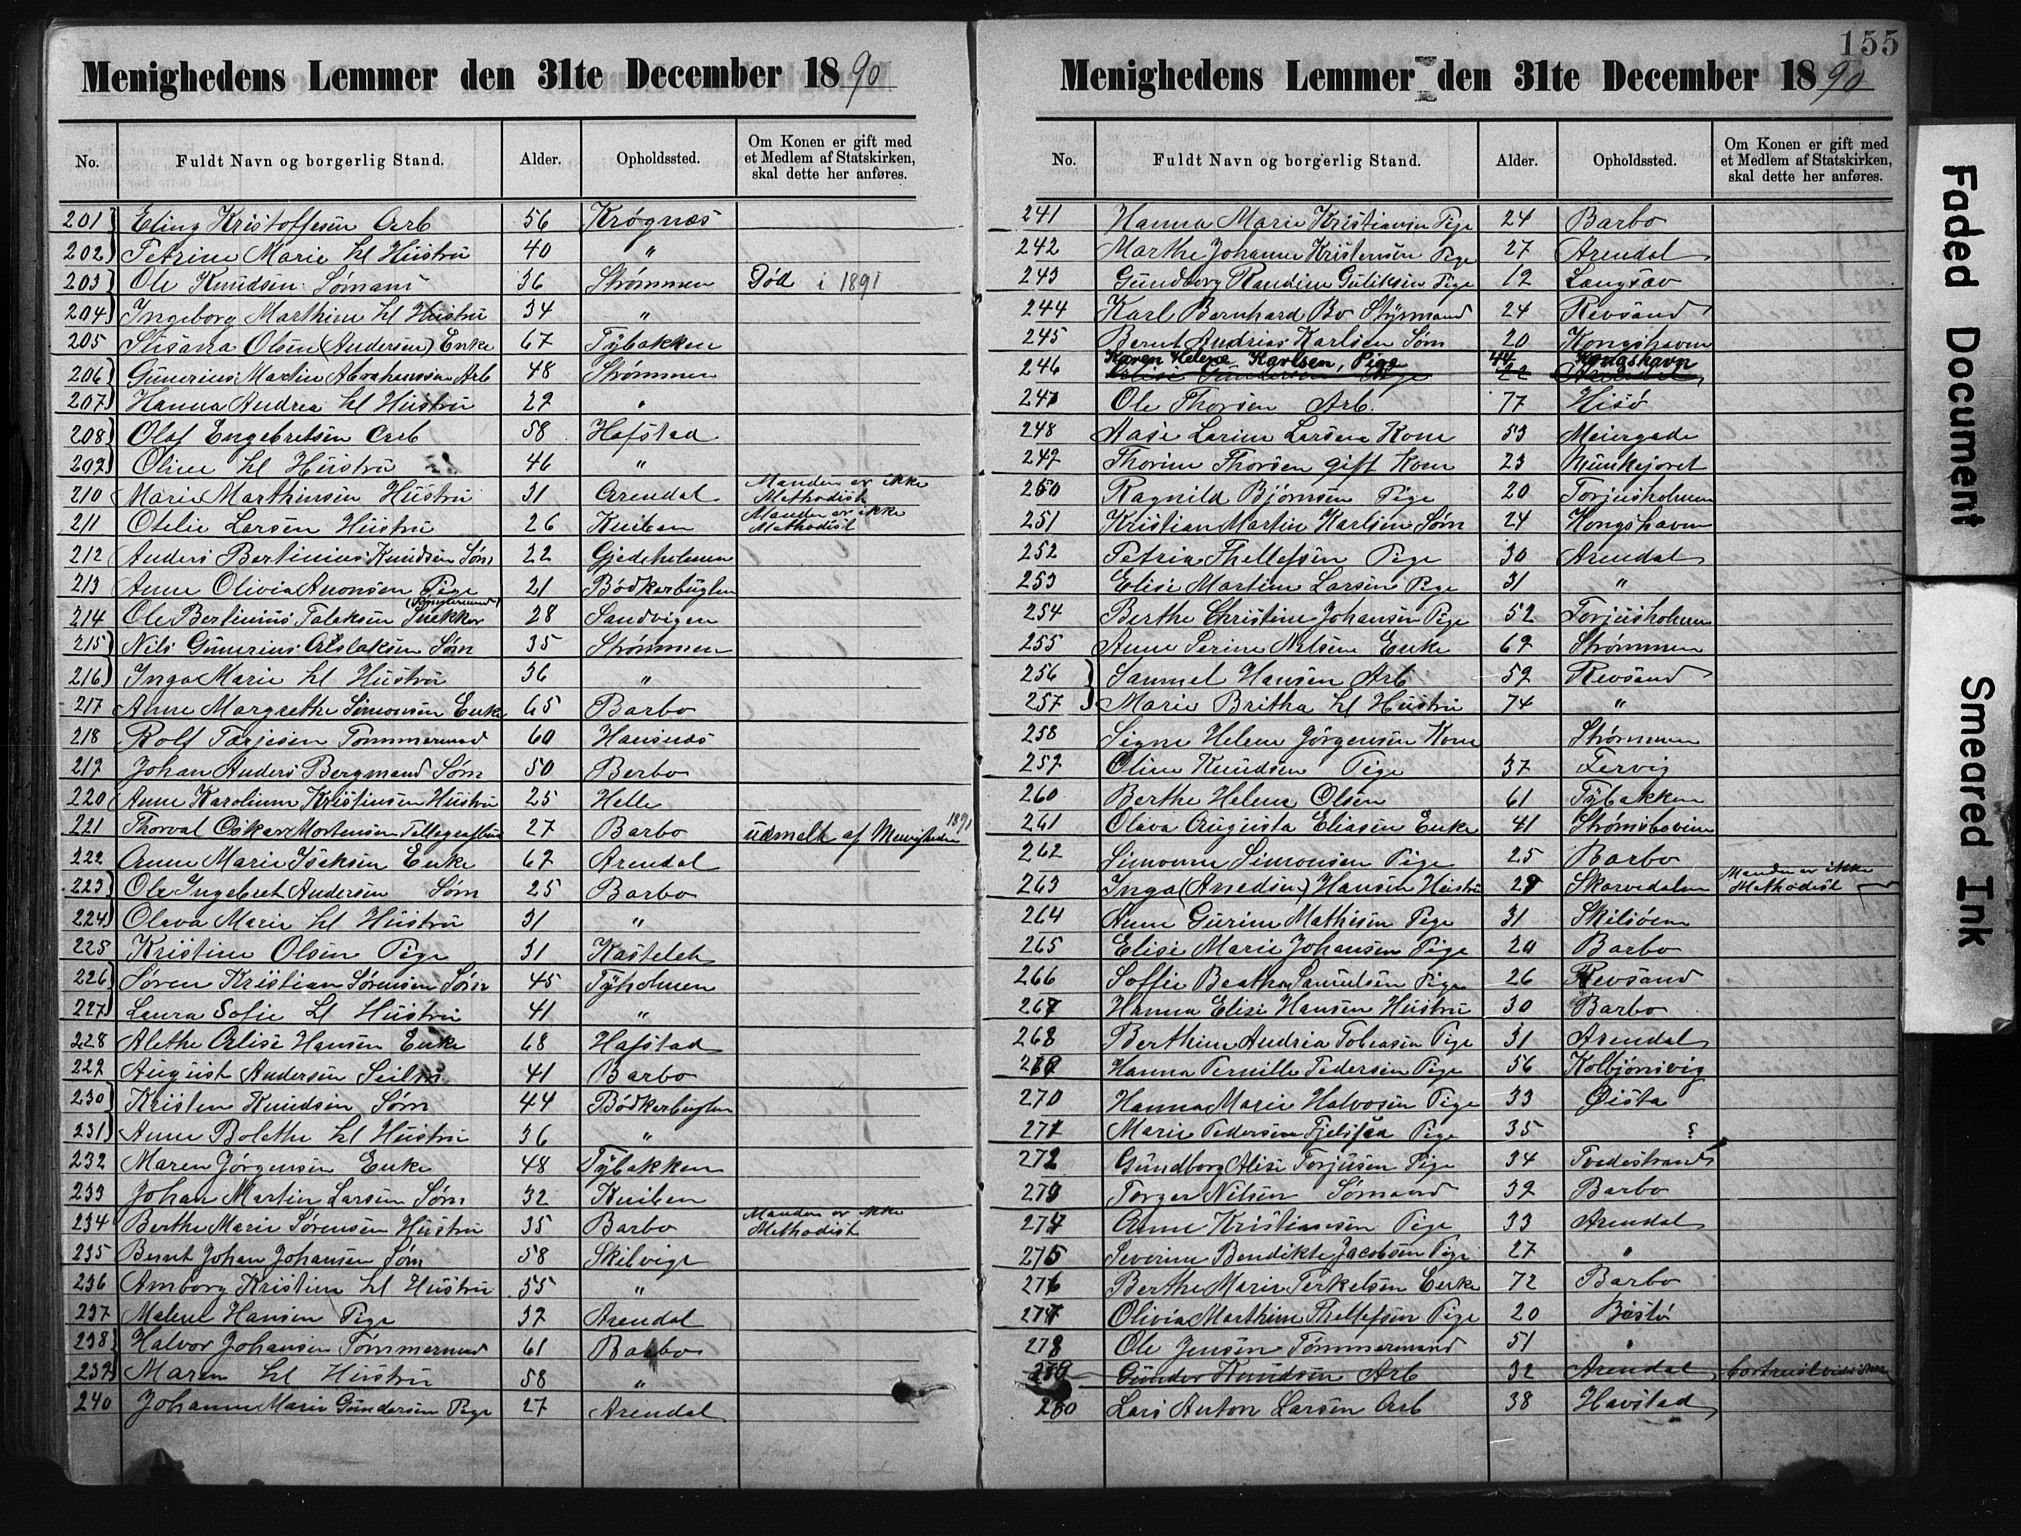 155
Menighedens Lemmer den 31te December 1890
No. Fuldt Navn og borgerlig Stand. Alder. Opholdssted. Om Konen er gift med et Medlem af Statskirken, skal dette her anføres.
201 Eling Kristoffesen Arb 56 Krøgnæs
202 Petrine Marie hl Hustru 40 "
203 Ole Knudsen Sømand 36 Strømmen Død i 1891
204 Ingeborg Marthine hl Hustru 34 "
205 Susanna Olsen (Andersen) Enke 67 Tybakken
206 Gunerius Martin Abrahamsen Arb 48 Strømmen
207 Hanna Andrea hl Hustru 29 "
208 Olaf Engebretsen Arb 58 Hafstad
209 Oline hl Hustru 46 "
210 Marie Marthinsen Hustru 31 Arendal Manden er ikke Methodist
211 Otelie Larsen Hustru 26 Kuiben Manden er ikke Methodist
212 Anders Bertinius Knudsen Søm 22 Gjedeholmen
213 Anne Olivia Amonsen Pige 21 Bödkerbugten
214 Ole Bertinius Talaksen Snekker (Tømmermand) 28 Sandvigen
215 Nils Gunerius Aslaksen Søm 35 Strømmen
216 Inga Marie hl Hustru 36 "
217 Anne Margrethe Simonsen Enke 65 Barbo
218 Rolf Tarjesen Tømmermand 60 Hansnæs
219 Johan Anders Bergmand Søm 50 Berbo
220 Anne Karoline Kristensen Hustru 25 Helle
221 Thorval Oskar Mortensen 27 Barbo udmeldt af Menigheden 1891
222 Anne Marie Iseksen Enke 69 Arendal
223 Ole Ingebret Andersen Søm 25 Barbo
224 Olava Marie hl Hustru 31 "
225 Kristine Olsen Pige 31 Kastelet
226 Søren Kristian Sørensen Søm 45 Tyholmen
227 Laura Sofie hl Hustru 41 "
228 Alethe Elise Hansen Enke 68 Hafstad
229 August Andersen Seilm 41 Barbo
230 Kristen Knudsen Søm 44 Bödkerbugten
231 Anne Bolethe hl Hustru 36 "
232 Maren Jørgensen Enke 48 Tybakken
233 Johan Martin Larsen Søm 32 Kuiben
234 Berthe Marie Sørensen Hustru 35 Barbo Manden er ikke Methodist
235 Bernt Johan Johansen Søm 58 Skilvige
236 Amborg Kristine hl Hustru 55 "
237 Malene Hansen Pige 39 Arendal
238 Halvor Johansen Tømmermand 61 Barbo
239 Maren hl Hustru 58 "
240 Johanne Marie Gundersen Pige 27 Arendal
Menighedens Lemmer den 31te December 1890
No. Fuldt Navn og borgerlig Stand. Alder. Opholdssted. Om Konen er gift med et Medlem af Statskirken, skal dette her anføres.
241 Hanna Marie Kristiansen Pige 24 Barbo
242 Marthe Johanne Kristensen Pige 27 Arendal
243 Gundborg Randine Guliksen Pige 19 Langsæv
244 Karl Bernhard Bo Styrmand 24 Revsand
245 Bernt Andrias Karlsen Søm 20 Kongshavn
246 Karen Helene Karlsen, Pige 44 Kongshavn
247 Ole Thorsen Arb. 77 Hisö
248 Aase Larine Larsen Kone 53 Meiergade
249 Thorine Thorsen gift Kone 23 Munkejoret
250 Ragnild Bjørnsen Pige 20 Torjusholmen
251 Kristian Martin Karlsen Søm 24 Kongshavn
252 Petria Thellefsen Pige 30 Arendal
253 Elise Martine Larsen Pige 31 "
254 Berthe Christine Johansen Pige 52 Torjusholmen
255 Anne Serine Nilsen Enke 69 Strømmen
256 Samuel Hansen Arb 59 Revsand
257 Marie Britha hl Hustru 74 "
258 Signe Helene Jørgensen Kone Strømmen
259 Oline Knudsen Pige 37 Fervig
260 Berthe Helene Olsen 61 Tybakken
261 Olava Augusta Eliasen Enke 41 Strømsbovien
262 Simonne Simonsen Pige 25 Barbo
263 Inga (Anedsen) Hansen Hustru 29 Skarvedalen Manden er ikke Methodist
264 Anne Gurine Mathisen Pige 31 Skilsöen
265 Elise Marie Johansen Pige 20 Barbo
266 Soffie Beatha Samuelsen Pige 26 Revsand
267 Hanna Elise Hansen Hustru 30 Barbo
268 Berthine Andria Tobiasen Pige 31 Arendal
269 Hanna Pernille Pedersen Pige 56 Kolbjønsvig
270 Hanna Marie Halvosen Pige 33 Øista
271 Marie Pedersen Fjelstad Pige 35 ?
272 Gundborg Alise Torjusen Pige 34 Tvedestrand
273 Torger Nilsen Sømand 39 Barbo
274 Anne Kristiansen Pige 33 Arendal
275 Severine Bendikte Jacobsen Pige 27 "
276 Berthe Marie Terkelsen Enke 72 Barbo
277 Olivia Marthine Thellefsen Pige 20 Bostö
278 Ole Jensen Tømmermand 51 "
279 Gunder Knudsen Arb 32 Arendal
280 Lars Anton Larsen Arb 38 Havstad
Faded Document
Smeared Ink